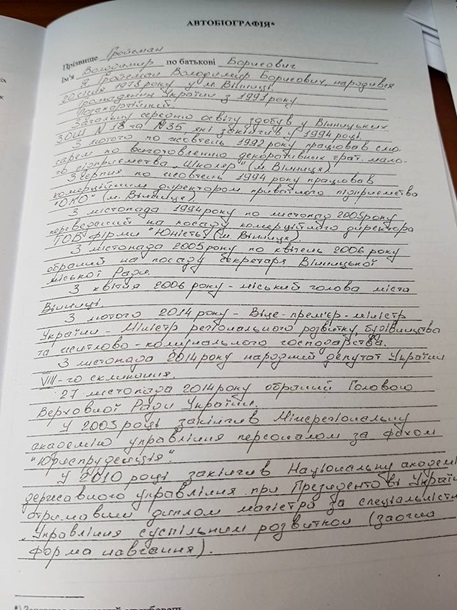 АВТОБІОГРАФІЯ*
Прізвище Гройсман
Ім'я Володимир по батькові Борисович
Я Гройсман Володимир Борисович, народився
1978 року у м. Вінниці.
Громадянин України з 1991 року
Позапартійний.
Загальну середню освіту здобув у Вінницьких
ЗОШ N 18 та N 35, які закінчив у 1994 році.
З лютого по жовтень 1992 року працював слю-
сарем по виготовленню декоративних грат мало-
го підприємства "Школяр" (м. Вінниця)
З серпня по жовтень 1994 року працював
комерційним директором приватного підприємства
"ОКО" (м. Вінниця)
З листопада 1994 року по листопад 2005 року
переведений на посаду комерційного директора
ТОВ фірми "Юність" (м. Вінниця)
З листопада 2005 року по квітень 2006 року
обраний на посаду секретаря Вінницької
міської Ради
З квітня 2006 року - міський голова міста
Вінниці.
З лютого 2014 року - Віце-прем'єр-міністр
України - Міністр регіонального розвитку, будівництва
та житлово-комунального господарства.
З листопада 2014 року народний депутат України
VIII-го скликання.
27 листопада 2014 року обраний Головою
Верховної Ради України.
У 2003 році закінчив Міжрегіональну
академію управління персоналом за фахом
"Юриспруденція".
У 2010 році закінчив Національну академі
державного управління при Президентові Украї
отримавши диплом магістра за спеціальніст
"Управління суспільним розвитком (заочна
форма навчання).